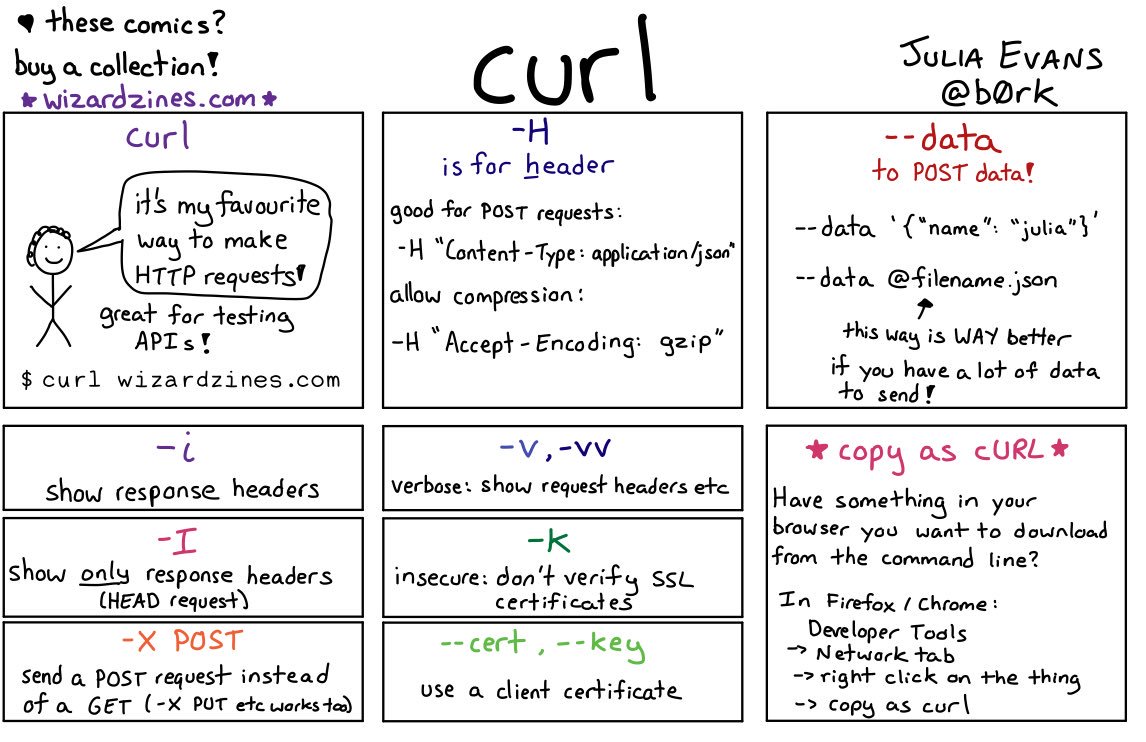 ♥ these comics?
buy a collection!
★ wizardzines.com ★
curl
JULIA EVANS
@b0rk
curl
it's my favourite
way to make
HTTP requests!
great for testing
APIs!
$ curl wizardzines.com
-H
is for header
good for POST requests:
-H "Content-Type: application/json"
allow compression:
-H "Accept-Encoding: gzip"
--data
to POST data!
--data '{"name": "julia"}'
--data @filename.json
this way is WAY better
if you have a lot of data
to send!
-i
show response headers
-I
show only response headers
(HEAD request)
-X POST
send a POST request instead
of a GET (-X PUT etc works too)
-v, -vv
verbose: show request headers etc
-k
insecure: don't verify SSL
certificates
--cert, --key
use a client certificate
★ copy as cURL ★
Have something in your
browser you want to download
from the command line?
In Firefox / Chrome:
Developer Tools
-> Network tab
-> right click on the thing
-> copy as curl